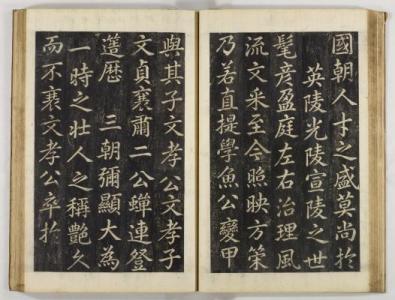 國朝人才之盛莫尚於
英陵光陵宣陵之世
髦彦盈庭左右治理風
流文采至今照映方策
乃若直提學魚公變甲
與其子文孝公文孝子
文貞襄肅二公蟬連登
薳歷 三朝彌顯大為
一時之壯人之稱艷久
而不衰文孝公卒於